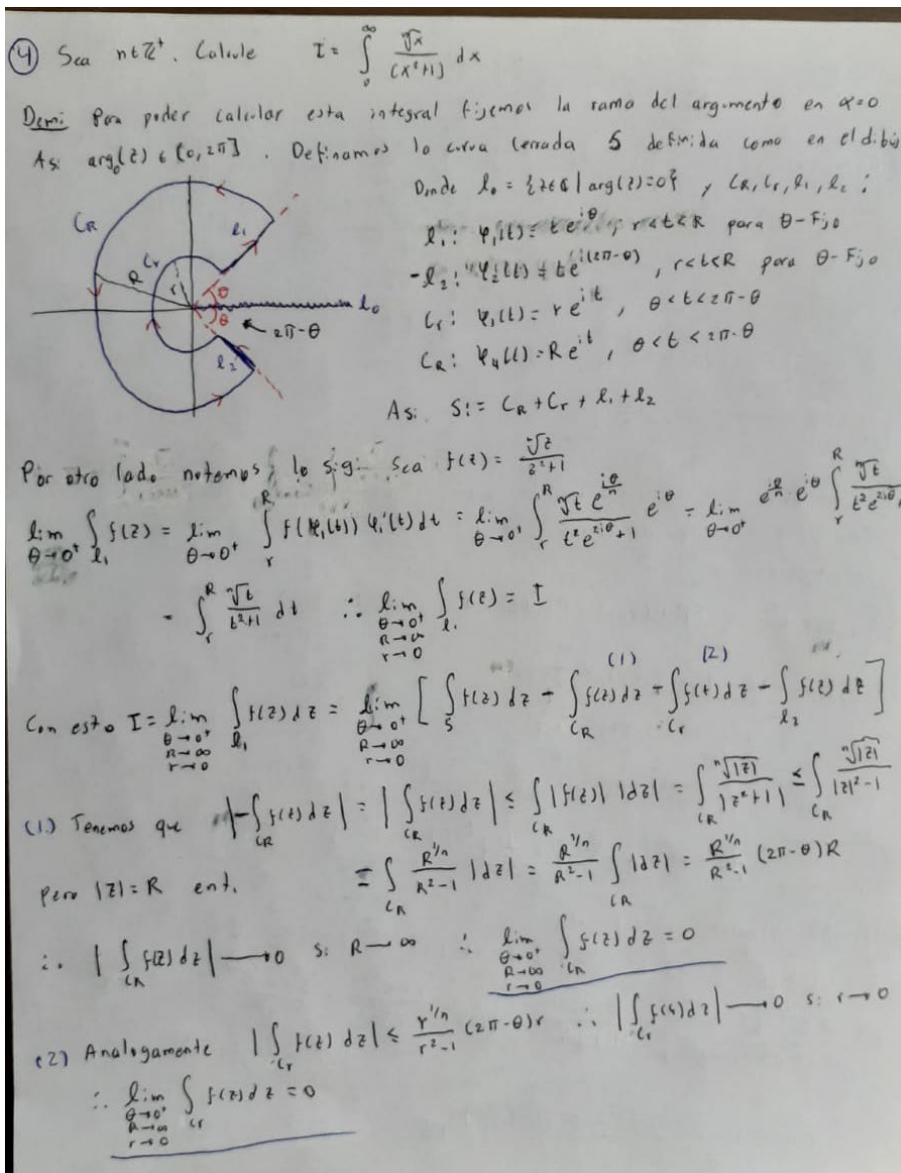 ④ Sea n∈ℤ⁺. Calcule I = ∫₀^∞ ⁿ√x / (x²+1) dx
Dem: Para poder calcular esta integral fijemos la rama del argumento en α=0
Así arg₀(z) ∈ (0, 2π]. Definamos la curva cerrada S definida como en el dibu
Donde l₀ = {z∈ℂ | arg(z)=0} y C_R, C_r, l₁, l₂ :
l₁: φ₁(t) = t e^{iθ}, r<t<R para θ-Fijo
-l₂: φ₂(t) = t e^{i(2π-θ)}, r<t<R para θ-Fijo
C_r: φ₃(t) = r e^{it}, θ<t<2π-θ
C_R: φ₄(t) = R e^{it}, θ<t<2π-θ
C_R
l₁
C_r
R
r
θ
θ
l₀
2π-θ
l₂
Así S := C_R + C_r + l₁ + l₂
Por otro lado notemos lo sig: Sea f(z) = ⁿ√z / z²+1
lim_{θ→0⁺} ∫_{l₁} f(z) = lim_{θ→0⁺} ∫_r^R f(φ₁(t)) φ₁'(t) dt = lim_{θ→0⁺} ∫_r^R ⁿ√t e^{iθ/n} / t² e^{2iθ}+1 e^{iθ} = lim_{θ→0⁺} e^{iθ/n} e^{iθ} ∫_r^R ⁿ√t / t² e^{2iθ}
= ∫_r^R ⁿ√t / t²+1 dt ∴ lim_{θ→0⁺ R→∞ r→0} ∫_{l₁} f(z) = I
(1) (2)
Con esto I = lim_{θ→0⁺ R→∞ r→0} ∫_{l₁} f(z) dz = lim_{θ→0⁺ R→∞ r→0} [ ∫_S f(z) dz - ∫_{C_R} f(z) dz - ∫_{C_r} f(z) dz - ∫_{l₂} f(z) dz ]
(1.) Tenemos que |-∫_{C_R} f(z) dz| = |∫_{C_R} f(z) dz| ≤ ∫_{C_R} |f(z)| |dz| = ∫_{C_R} ⁿ√|z| / |z²+1| ≤ ∫_{C_R} ⁿ√|z| / |z|²-1
Pero |z|=R ent. = ∫_{C_R} R^{1/n} / R²-1 |dz| = R^{1/n} / R²-1 ∫_{C_R} |dz| = R^{1/n} / R²-1 (2π-θ)R
∴ |∫_{C_R} f(z) dz| → 0 si R→∞ ∴ lim_{θ→0⁺ R→∞ r→0} ∫_{C_R} f(z) dz = 0
(2) Analogamente |∫_{C_r} f(z) dz| ≤ r^{1/n} / r²-1 (2π-θ)r ∴ |∫_{C_r} f(z) dz| → 0 si r→0
∴ lim_{θ→0⁺ R→∞ r→0} ∫_{C_r} f(z) dz = 0